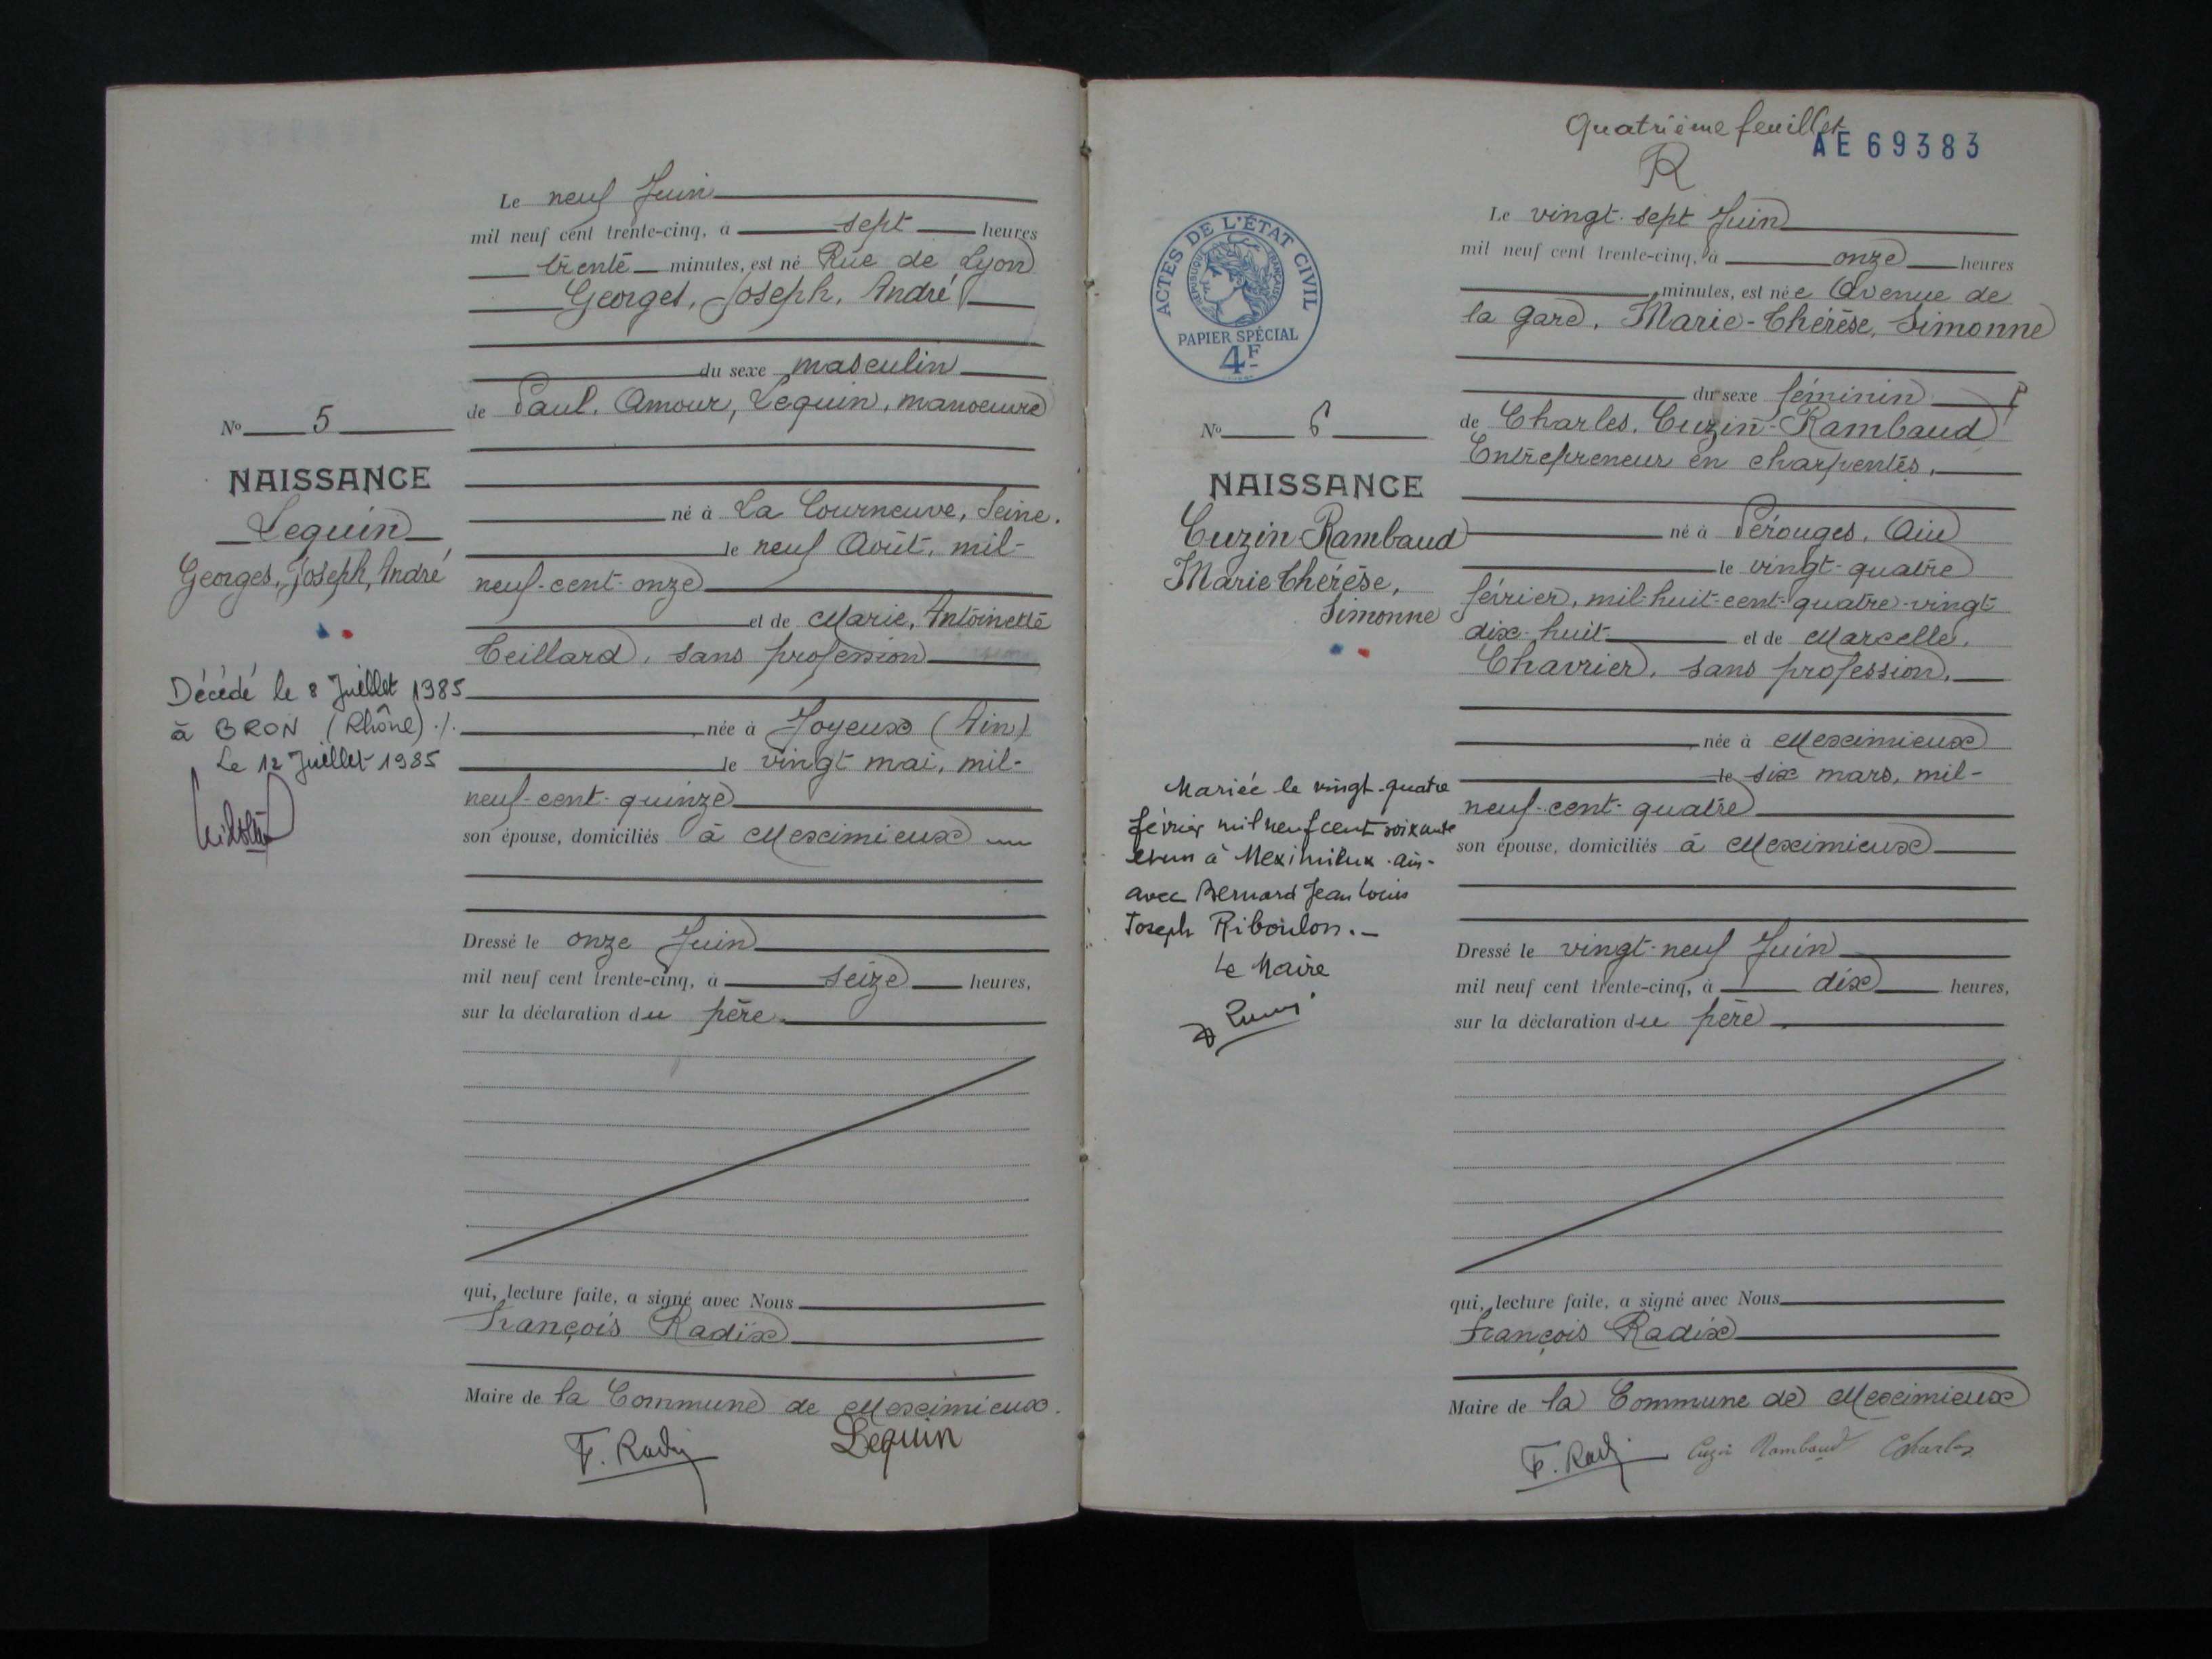 Le neuf Juin
mil neuf cent trente-cinq, à sept heures
trente minutes, est né Rue de Lyon
Georges, Joseph, André
du sexe masculin
de Paul, Amour, Lequin, manoeuvre
né à La Courneuve, Seine.
le neuf Août, mil-
neuf-cent-onze
et de Marie, Antoinette
Teillard, sans profession
née à Joyeux (Ain)
le vingt mai, mil-
neuf-cent-quinze
son épouse, domiciliés à Meximieux
Dressé le onze Juin
mil neuf cent trente-cinq, à seize heures,
sur la déclaration du père.
qui, lecture faite, a signé avec Nous
François Radix
Maire de la Commune de Meximieux.
F. Radix
Lequin
No 5
NAISSANCE
Lequin
Georges, Joseph, André
Décédé le 8 Juillet 1985
à BRON (Rhône) ./.
Le 12 Juillet 1985
Quatrième feuillet
AE 69383
R
ACTES DE L'ÉTAT CIVIL
RÉPUBLIQUE FRANÇAISE
PAPIER SPÉCIAL
4F
Le vingt-sept Juin
mil neuf cent trente-cinq, à onze heures
minutes, est née Avenue de
la gare, Marie-Thérèse, Simonne
du sexe féminin
de Charles, Cuzin-Rambaud
Entrepreneur en charpentes,
né à Pérouges, Ain
le vingt-quatre
février, mil-huit-cent-quatre-vingt
dix-huit et de Marcelle,
Chavrier, sans profession,
née à Meximieux
le six mars, mil-
neuf-cent-quatre
son épouse, domiciliés à Meximieux
Dressé le vingt-neuf Juin
mil neuf cent trente-cinq, à dix heures,
sur la déclaration du père.
qui, lecture faite, a signé avec Nous
François Radix
Maire de la Commune de Meximieux
F. Radix Cuzin Rambaud Charles
No 6
NAISSANCE
Cuzin-Rambaud
Marie Thérèse,
Simonne
Mariée le vingt-quatre
février mil neuf cent soixante
et un à Meximieux -Ain-
avec Bernard Jean Louis
Joseph Riboulon.-
Le Maire